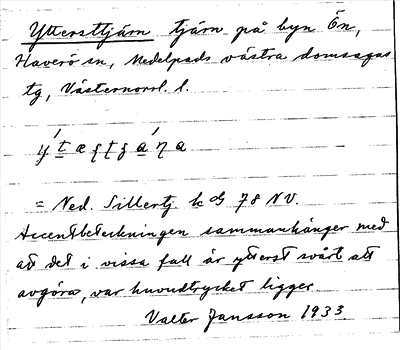 Yttersttjärn tjärn på byn Ön,
Haverö sn, Medelpads västra domsagas
tg, Västernorrl. l.
= Ned. Sillertj k bl 78 NV.
Accentbeteckningen sammanhänger med
att det i vissa fall är ytterst svårt att
avgöra, var huvudtrycket ligger
Valter Jansson 1933